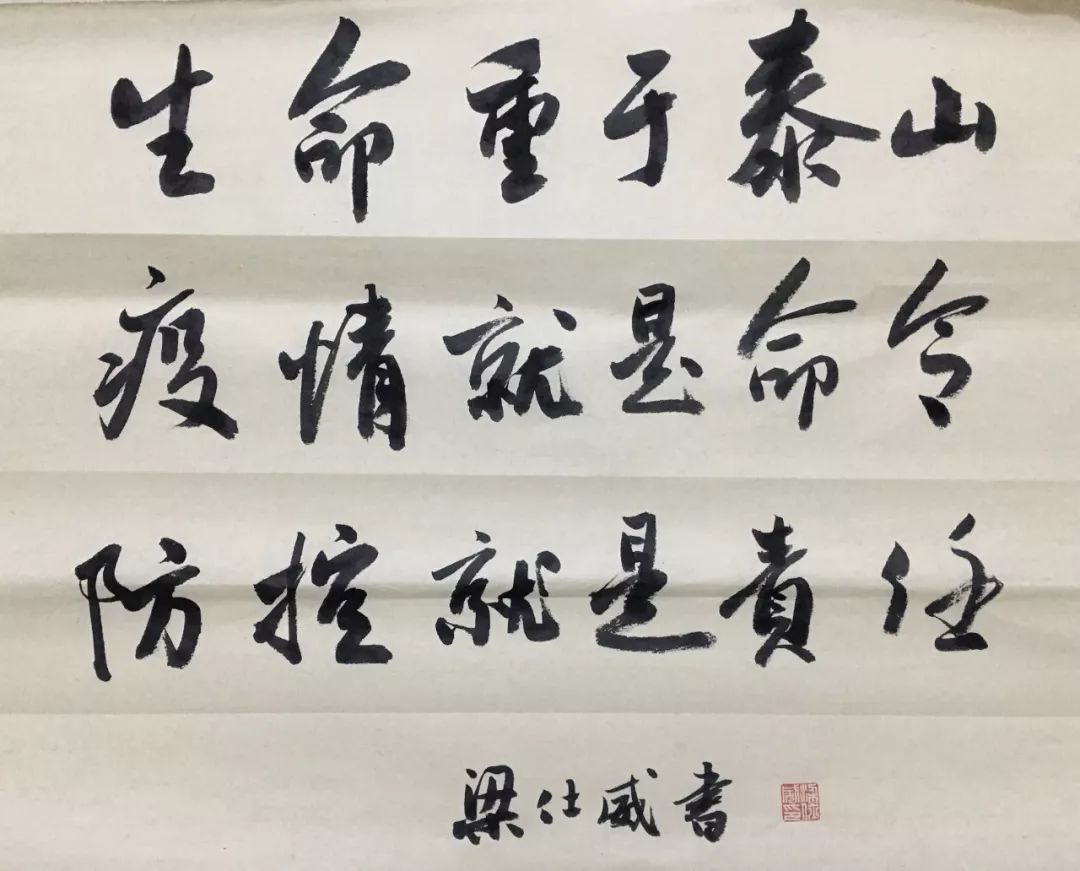 生命重于泰山
疫情就是命令
防控就是責任
梁仕威書